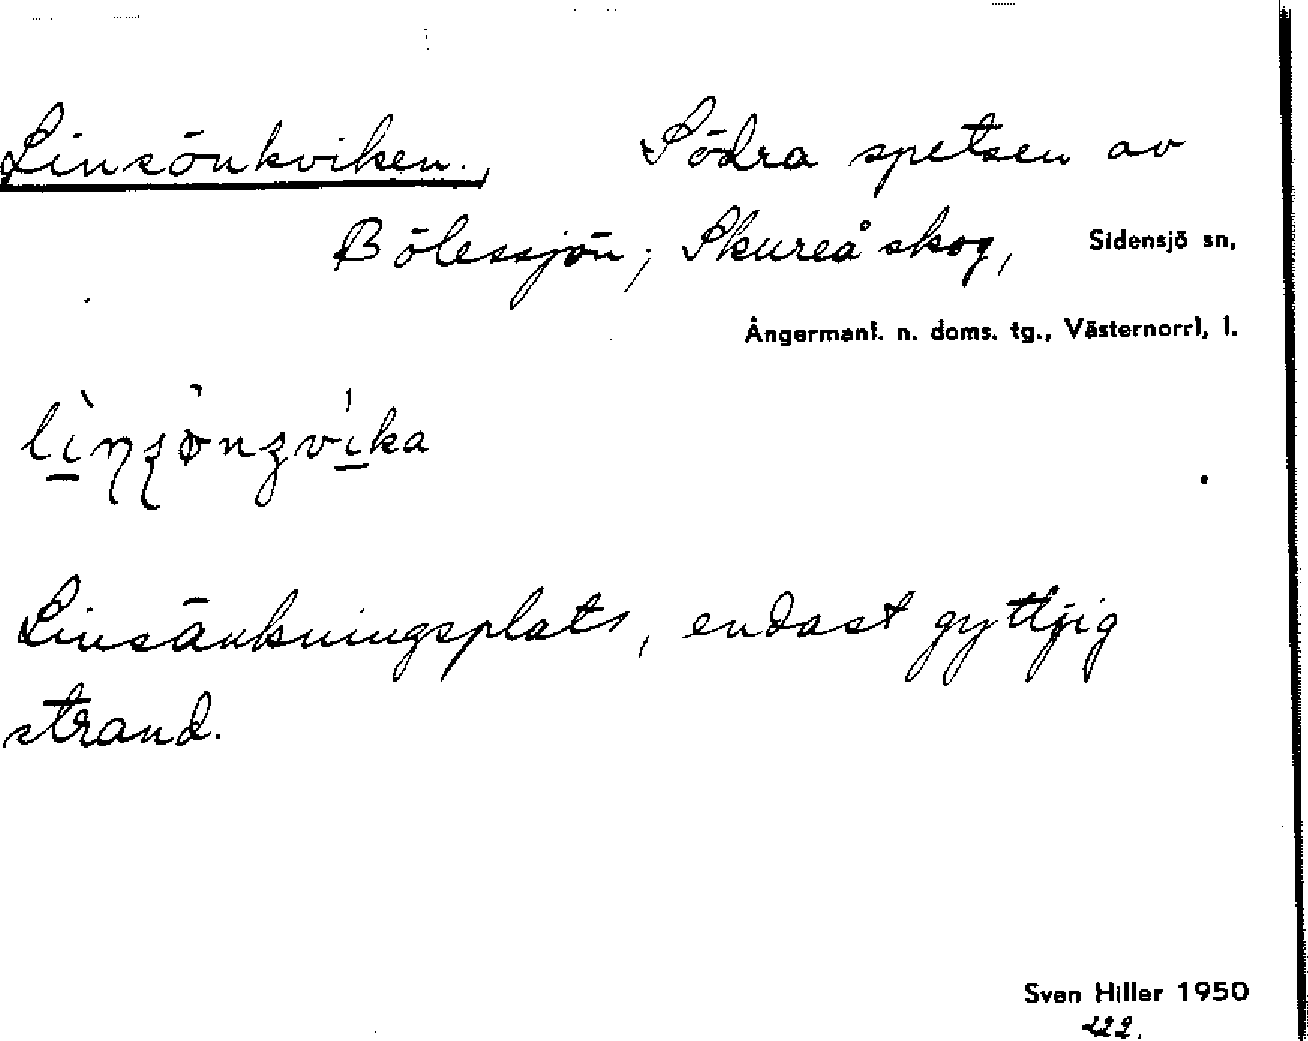 Linsönkviken., Södra spetsen av
Bölessjön; Skureå skog, Sidensjö sn,
Ångermanl. n. doms. tg., Västernorrl, l.
Linsänkningsplats, endast gyttjig
strand.
Sven Hiller 1950
222.